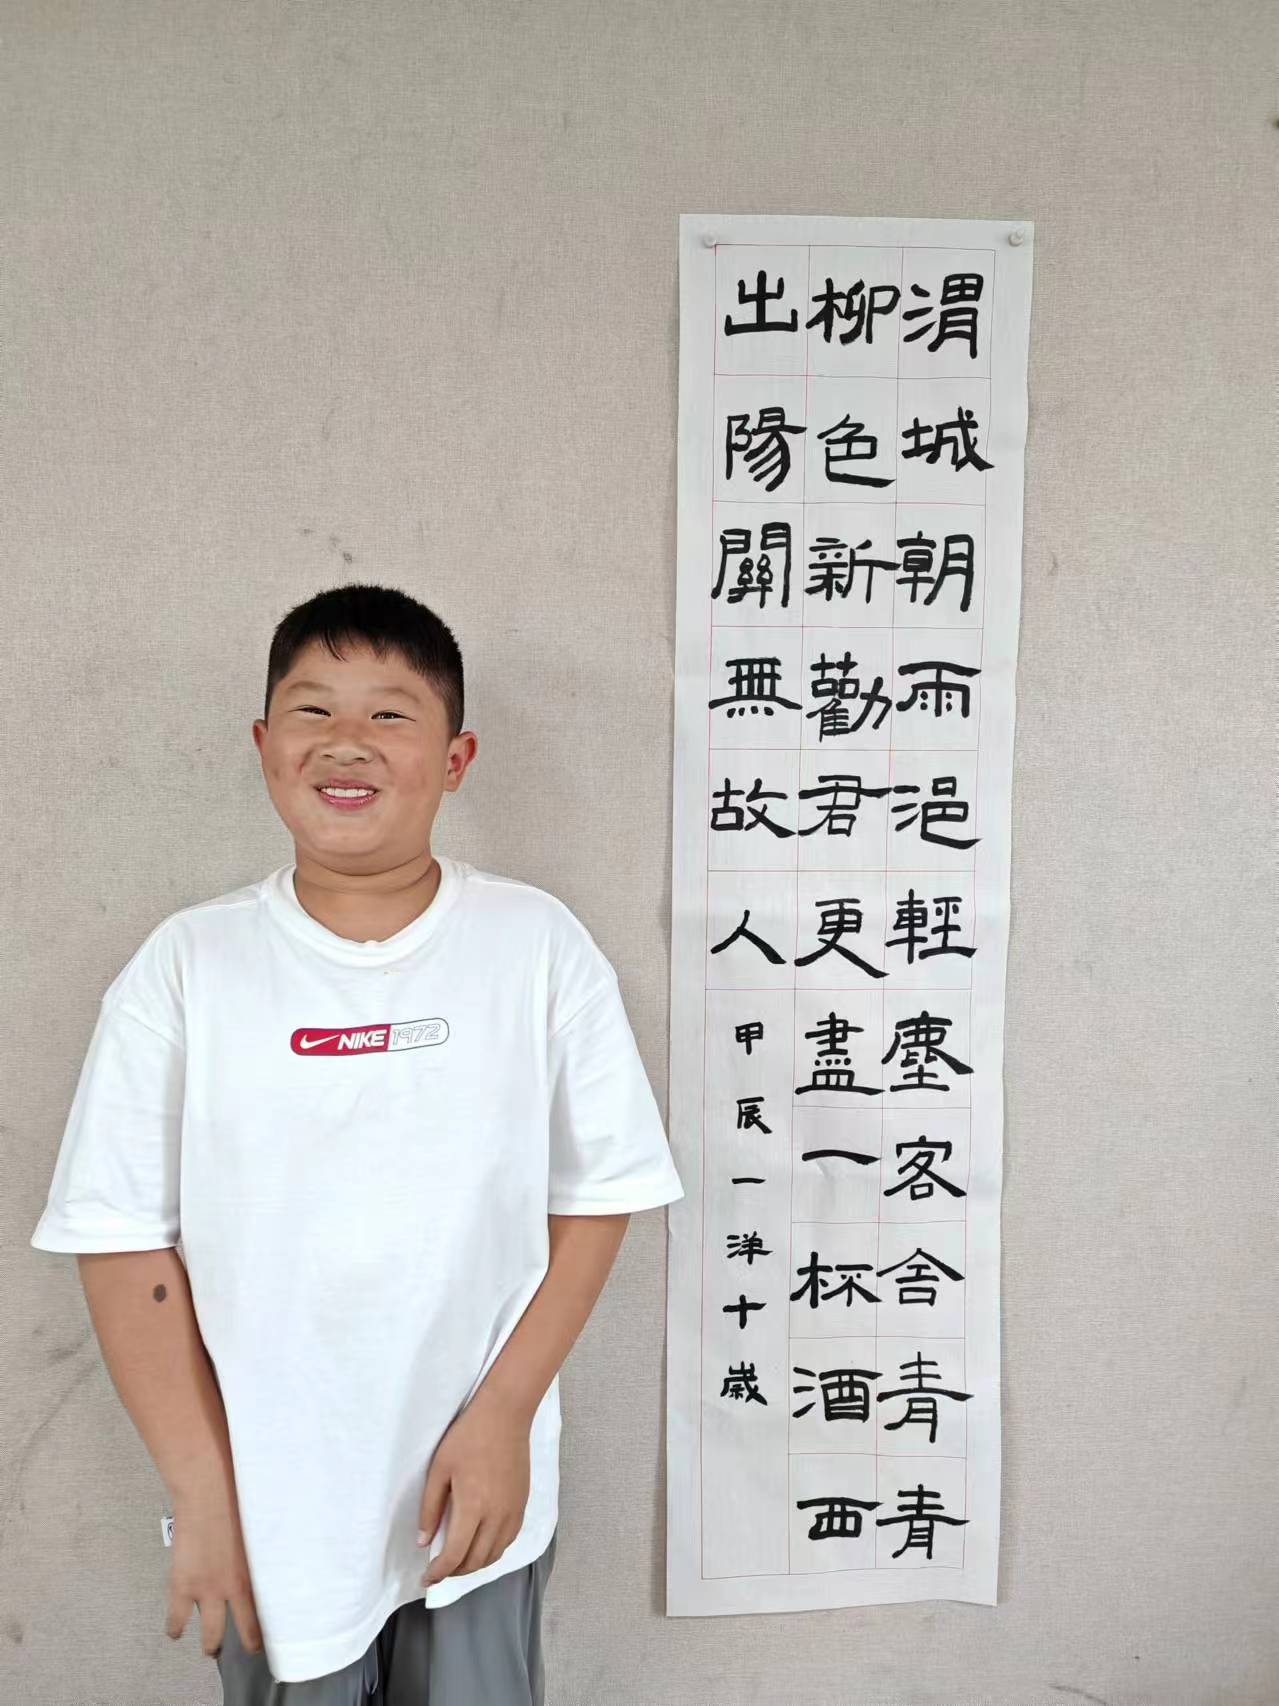 渭城朝雨浥輕塵客舍青青
柳色新勸君更盡一杯酒西
出陽關無故人
甲辰一洋十歲
NIKE 1972